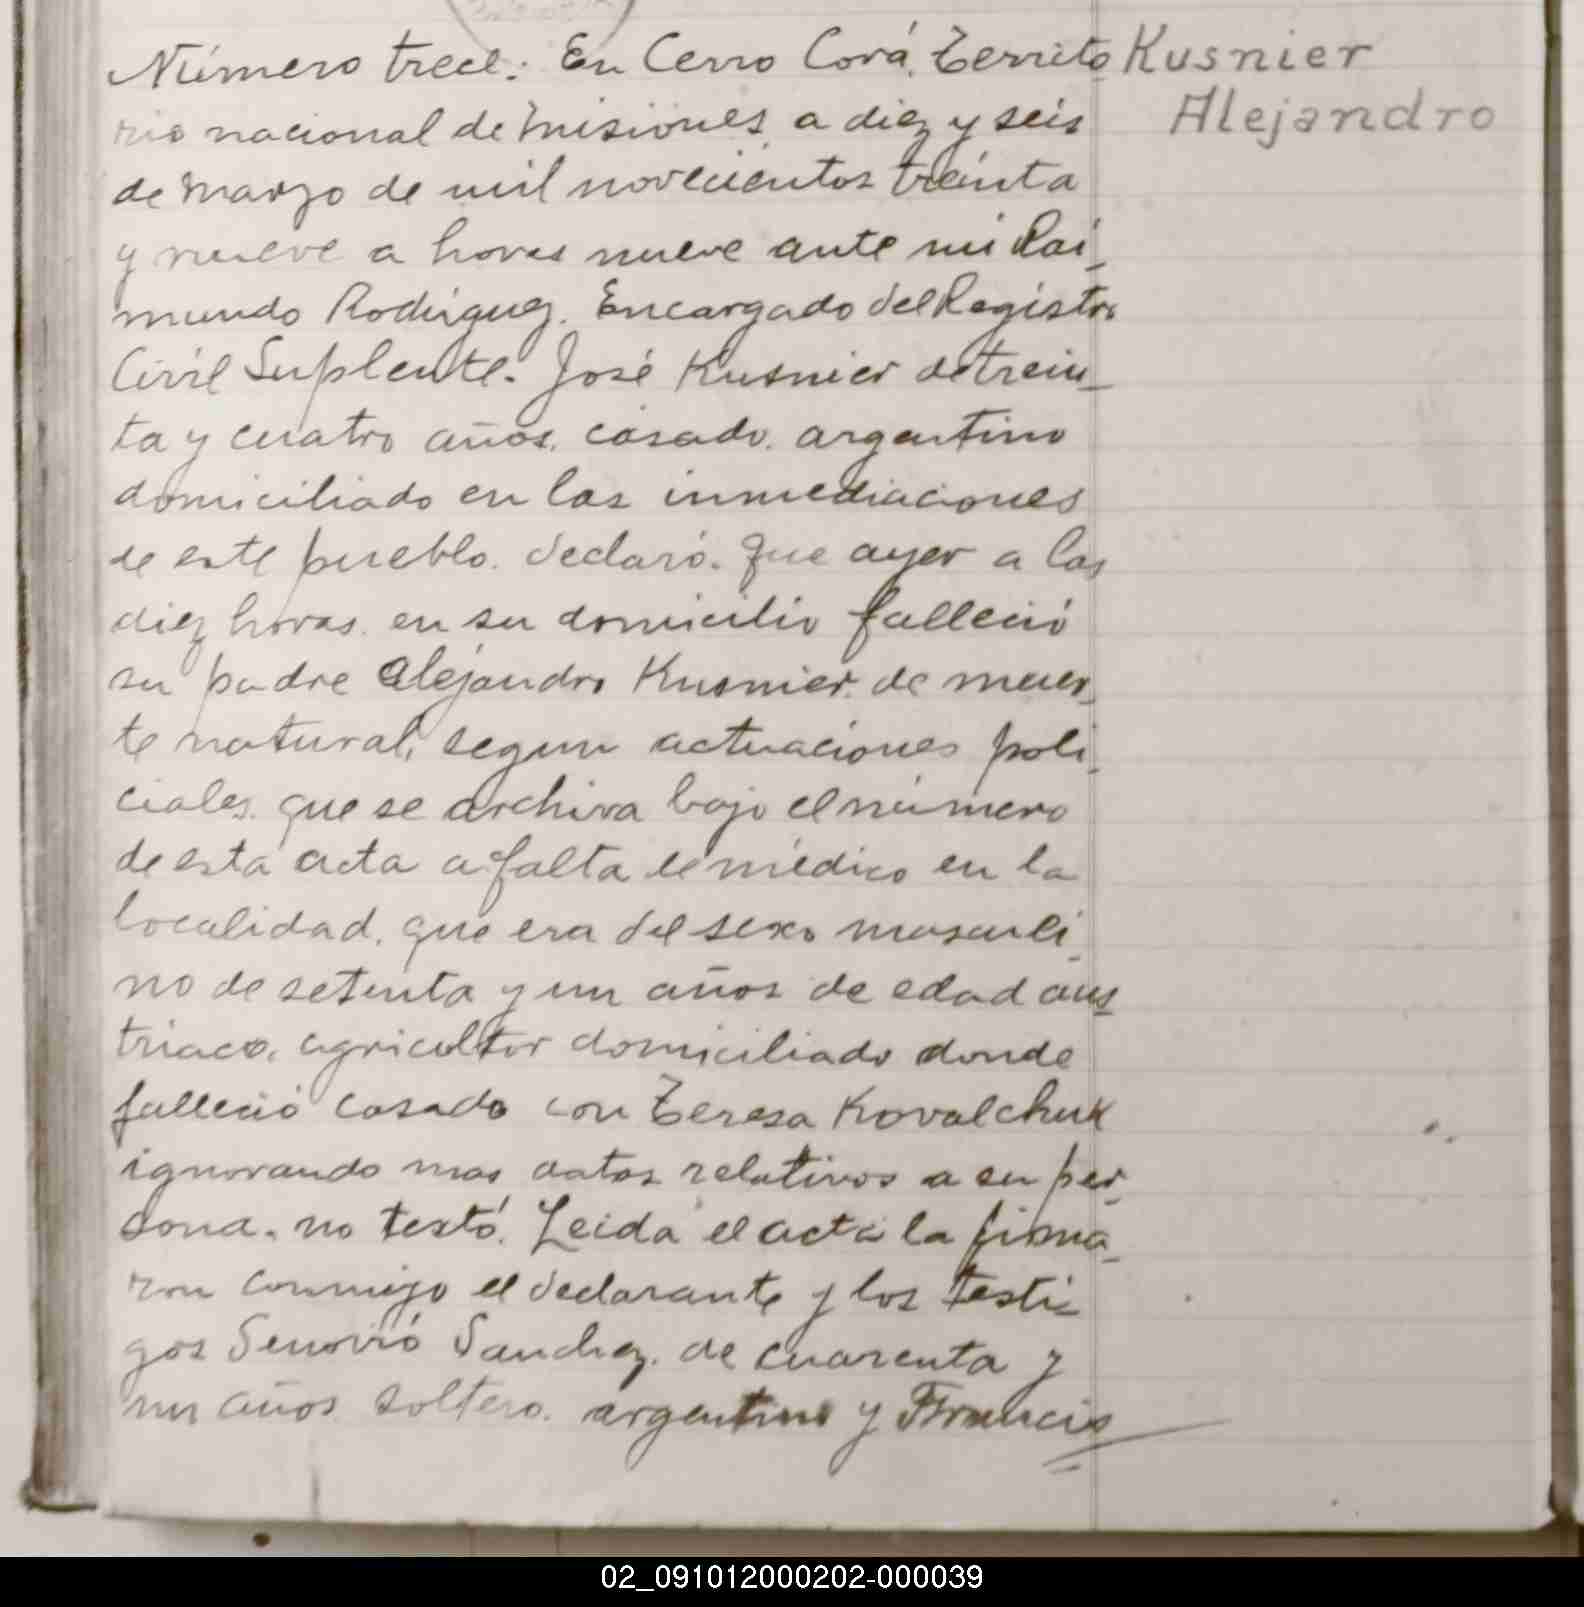 Número trece: En Cerro Corá, Territo
Kusnier
Alejandro
rio nacional de Misiones, a diez y seis
de Marzo de mil novecientos treinta
y nueve a horas nueve ante mi Rai_
mundo Rodriguez. Encargado del Registro
Civil Suplente. José Kusnier de trein_
ta y cuatro años. casado. argentino
domiciliado en las inmediaciones
de este pueblo. declaró. Que ayer a las
diez horas. en su domicilio falleció
su padre Alejandro Kusnier. de muer_
te natural, segun actuaciones poli_
ciales. que se archiva bajo el número
de esta acta a falta de médico en la
localidad. que era del sexo masculi_
no de setenta y un años de edad aus_
triaco. agricultor domiciliado donde
falleció casado con Teresa Kovalchuk
ignorando mas datos relativos a su per_
sona. no testó. Leida el acta la firma_
ron conmigo el declarante y los testi_
gos Senovió Sanchez. de cuarenta y
un años soltero. argentino y Francis
02_091012000202-000039